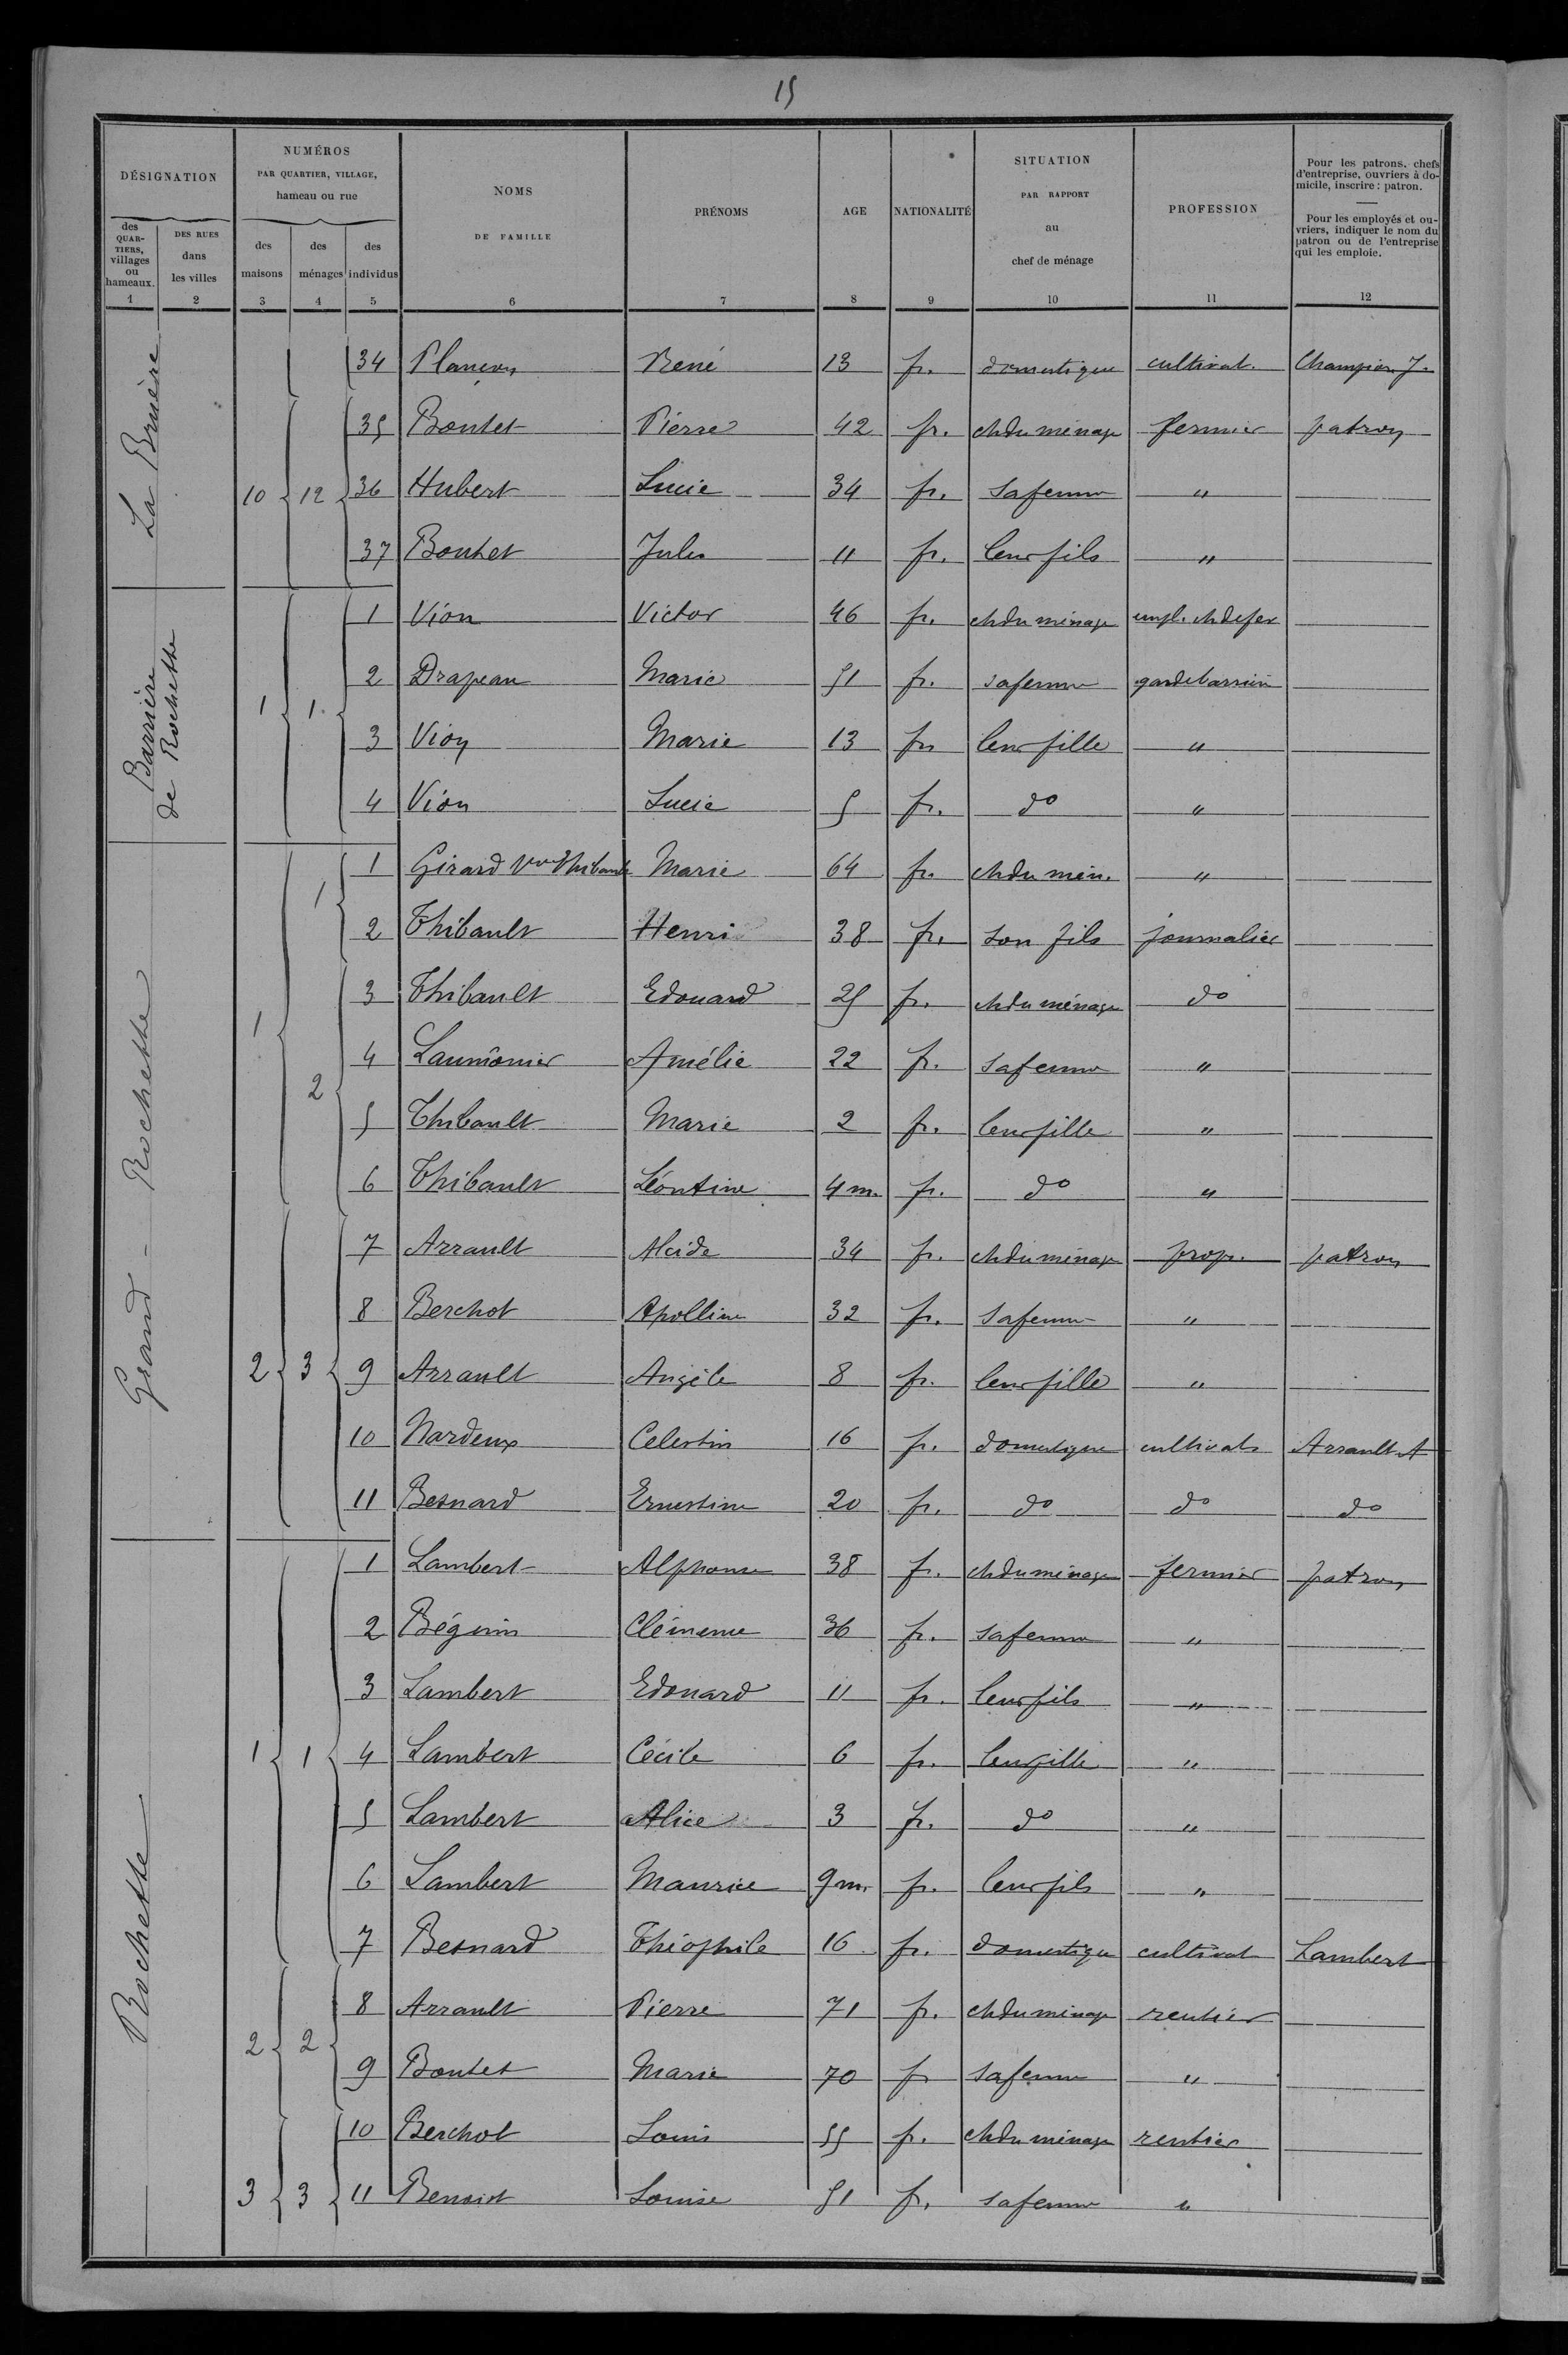 15
DÉSIGNATION
des QUARTIERS, villages ou hameaux.
1
DES RUES dans les villes
2
NUMÉROS
PAR QUARTIER, VILLAGE,
hameau ou rue
des maisons
3
des ménages
4
des individus
5
NOMS
DE FAMILLE
6
PRÉNOMS
7
AGE
8
NATIONALITÉ
9
SITUATION
PAR RAPPORT
au
chef de ménage
10
PROFESSION
11
Pour les patrons, chefs
d'entreprise, ouvriers à do-
micile, inscrire : patron.
Pour les employés et ou-
vriers, indiquer le nom du
patron ou de l'entreprise
qui les emploie.
12
La Bruère
34 Plançon René 13 fr. domestique cultivat. Champion J.
35 Boutet Pierre 42 fr. ch du ménage fermier patron
10 12 36 Hubert Lucie 34 fr. sa femme "
37 Boutet Jules 11 fr. leur fils "
Barrière de Rochette
1 Vion Victor 46 fr. ch du ménage empl. ch de fer
2 Drapeau Marie 51 fr. sa femme garde barrière
1 1
3 Vion Marie 13 fr. leur fille "
4 Vion Lucie 5 fr. do "
Grand - Rochette
1 Girard Vve Thibault Marie 64 fr. ch du mén. "
1
2 Thibault Henri 38 fr. son fils journalier
3 Thibault Edouard 25 fr. ch du ménage do
1
4 Laumônier Amélie 22 fr. sa femme "
2
5 Thibault Marie 2 fr. leur fille "
6 Thibault Léontine 4 m. fr. do "
7 Arrault Alcide 34 fr. ch du ménage prop. patron
8 Berchot Apolline 32 fr. sa femme "
2 3 9 Arrault Angèle 8 fr. leur fille "
10 Nardeux Celestin 16 fr. domestique cultivat Arrault A
11 Besnard Ernestine 20 fr. do do do
Rochette
1 Lambert Alphonse 38 fr. ch du ménage fermier patron
2 Béguin Clémence 36 fr. sa femme "
3 Lambert Edouard 11 fr. leur fils "
1 1 4 Lambert Cécile 6 fr. leur fille "
5 Lambert Alice 3 fr. do "
6 Lambert Maurice 9 m. fr. leur fils "
7 Besnard Théophile 16 fr. domestique cultivat Lambert
8 Arrault Pierre 71 fr. ch du ménage rentier
2 2
9 Boutet Marie 70 fr sa femme "
10 Berchot Louis 55 fr. ch du ménage rentier
3 3 11 Benoist Louise 51 fr. sa femme "